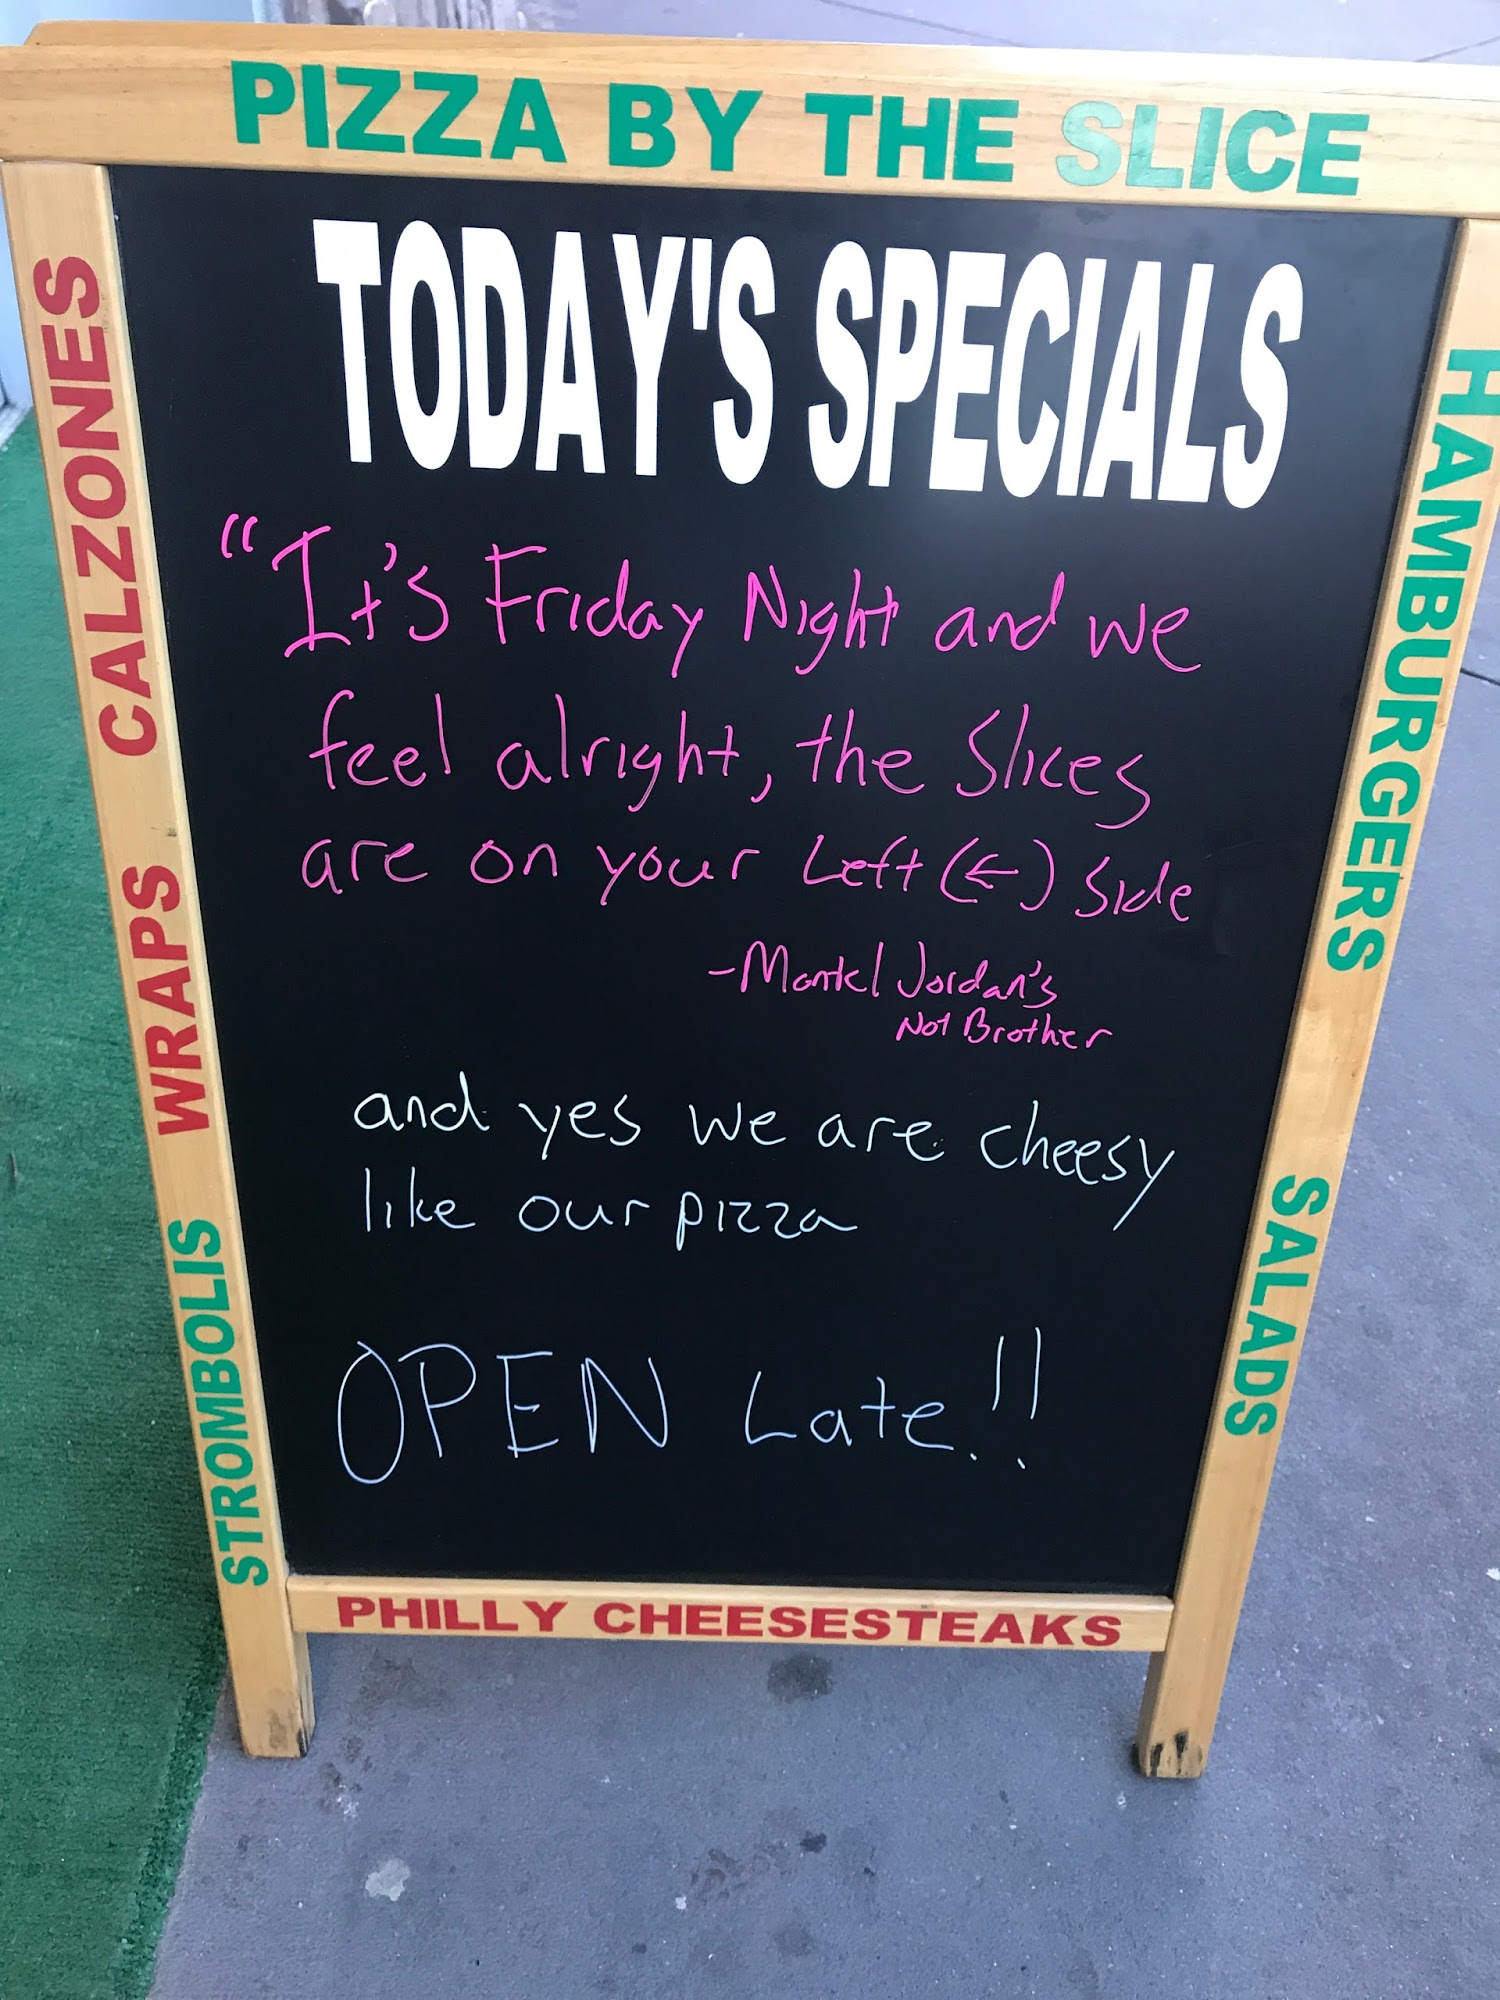 PIZZA BY THE SLICE
TODAY'S SPECIALS
"It's Friday Night and we
feel alright, the Slices
are on your Left (←) Side
-Montel Jordan's
Not Brother
and yes we are cheesy
like our pizza
OPEN Late!!
CALZONES
WRAPS
STROMBOLIS
HAMBURGERS
SALADS
PHILLY CHEESESTEAKS